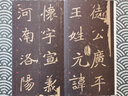 德公廣平
王姓元諱
懷字宣義
河南洛陽